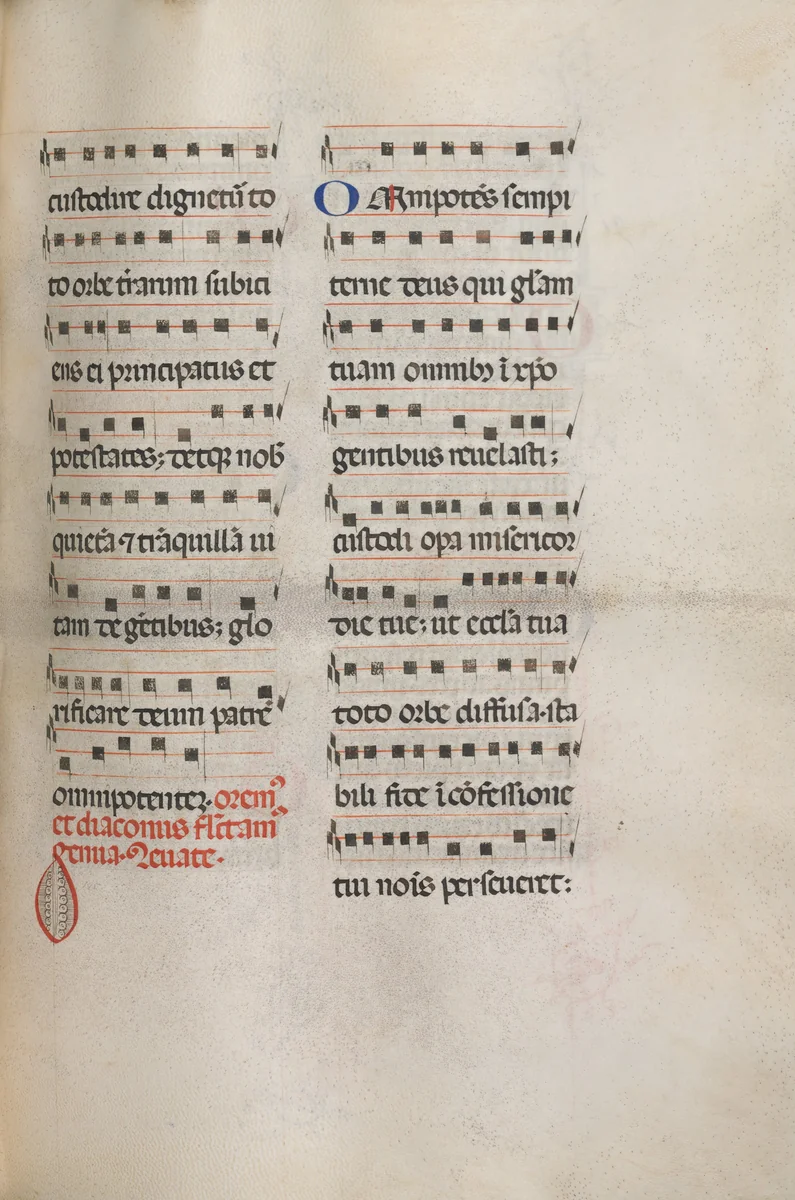 custodire dignetũ to
to orbe t̃rarum subici
ens ei principatus et
potestates; detq; nob̃
quietã ⁊ trãquillã ui
tam degẽtibus; glo
rificare deum patrẽ
omnipotentez. orem᾽
et diaconus flctam᾽
genua. Leuate.
OMnipotẽs sempi
terne deus qui gl̃am
tuam omnibꝫ ĩ xp̃o
gentibus reuelasti;
custodi opa misericor
die tue; ut eccl̃a tua
toto orbe diffusa. sta
bili fide ĩ cõfessione
tui noĩs perseueret: